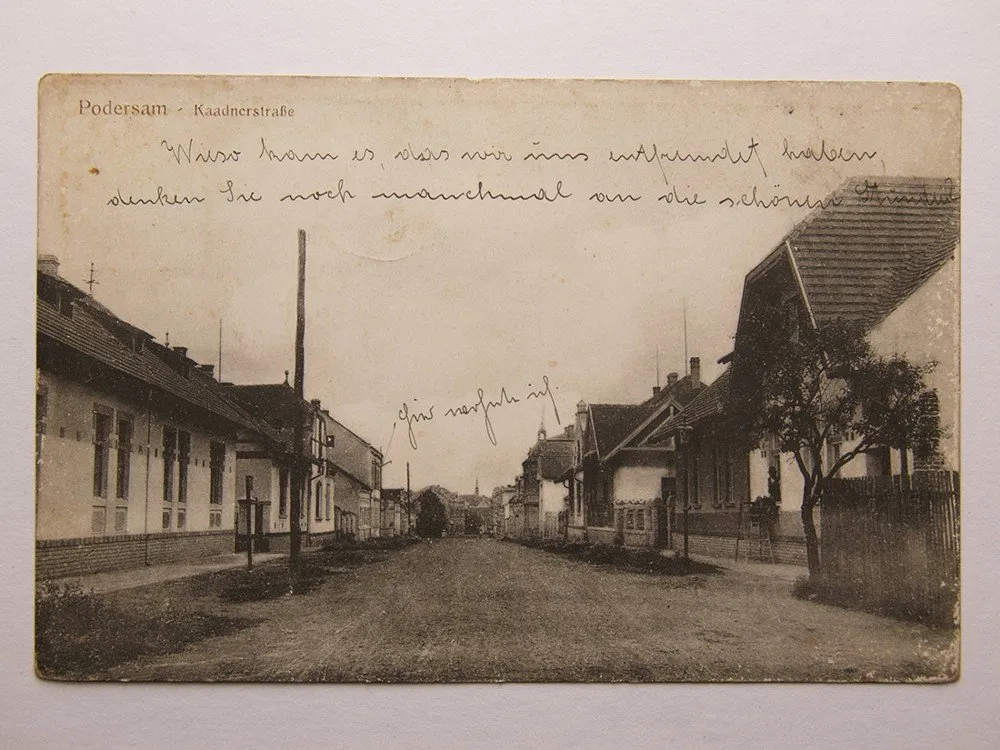 Podersam - Kaadnerstraße
Wieso kam es, das wir uns entfremdet haben,
denken Sie noch manchmal an die schönen Stunden
wohnte ich.